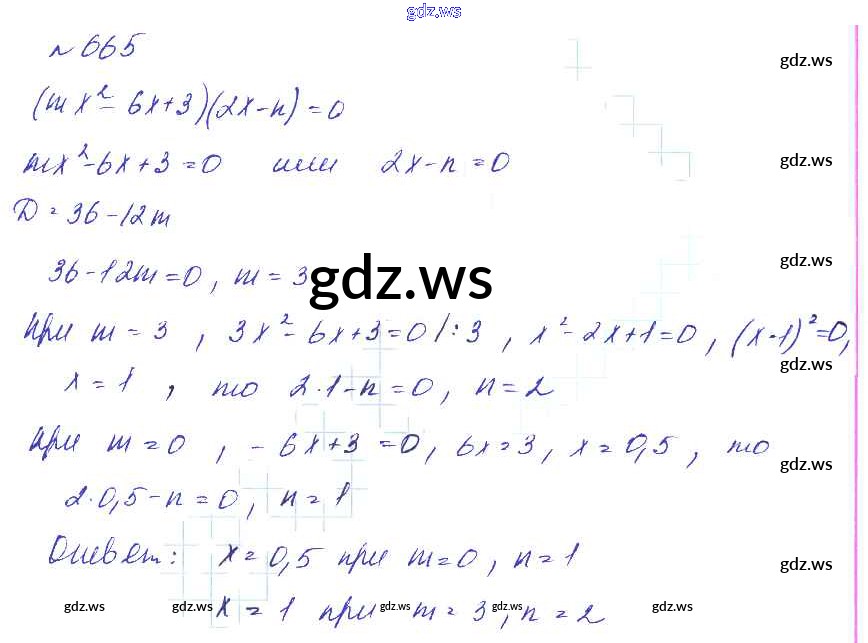 gdz.ws
№ 665
gdz.ws
(mx² - 6x + 3)(2x - n) = 0
mx² - 6x + 3 = 0 или 2x - n = 0 gdz.ws
D = 36 - 12m
gdz.ws
36 - 12m = 0, m = 3
gdz.ws
при m = 3, 3x² - 6x + 3 = 0 /:3, x² - 2x + 1 = 0, (x - 1)² = 0,
gdz.ws
x = 1, то 2·1 - n = 0, n = 2
при m = 0, -6x + 3 = 0, 6x = 3, x = 0,5, то
gdz.ws
2·0,5 - n = 0, n = 1
Ответ: x = 0,5 при m = 0, n = 1 gdz.ws
gdz.ws gdz.ws gdz.ws gdz.ws gdz.ws
x = 1 при m = 3, n = 2